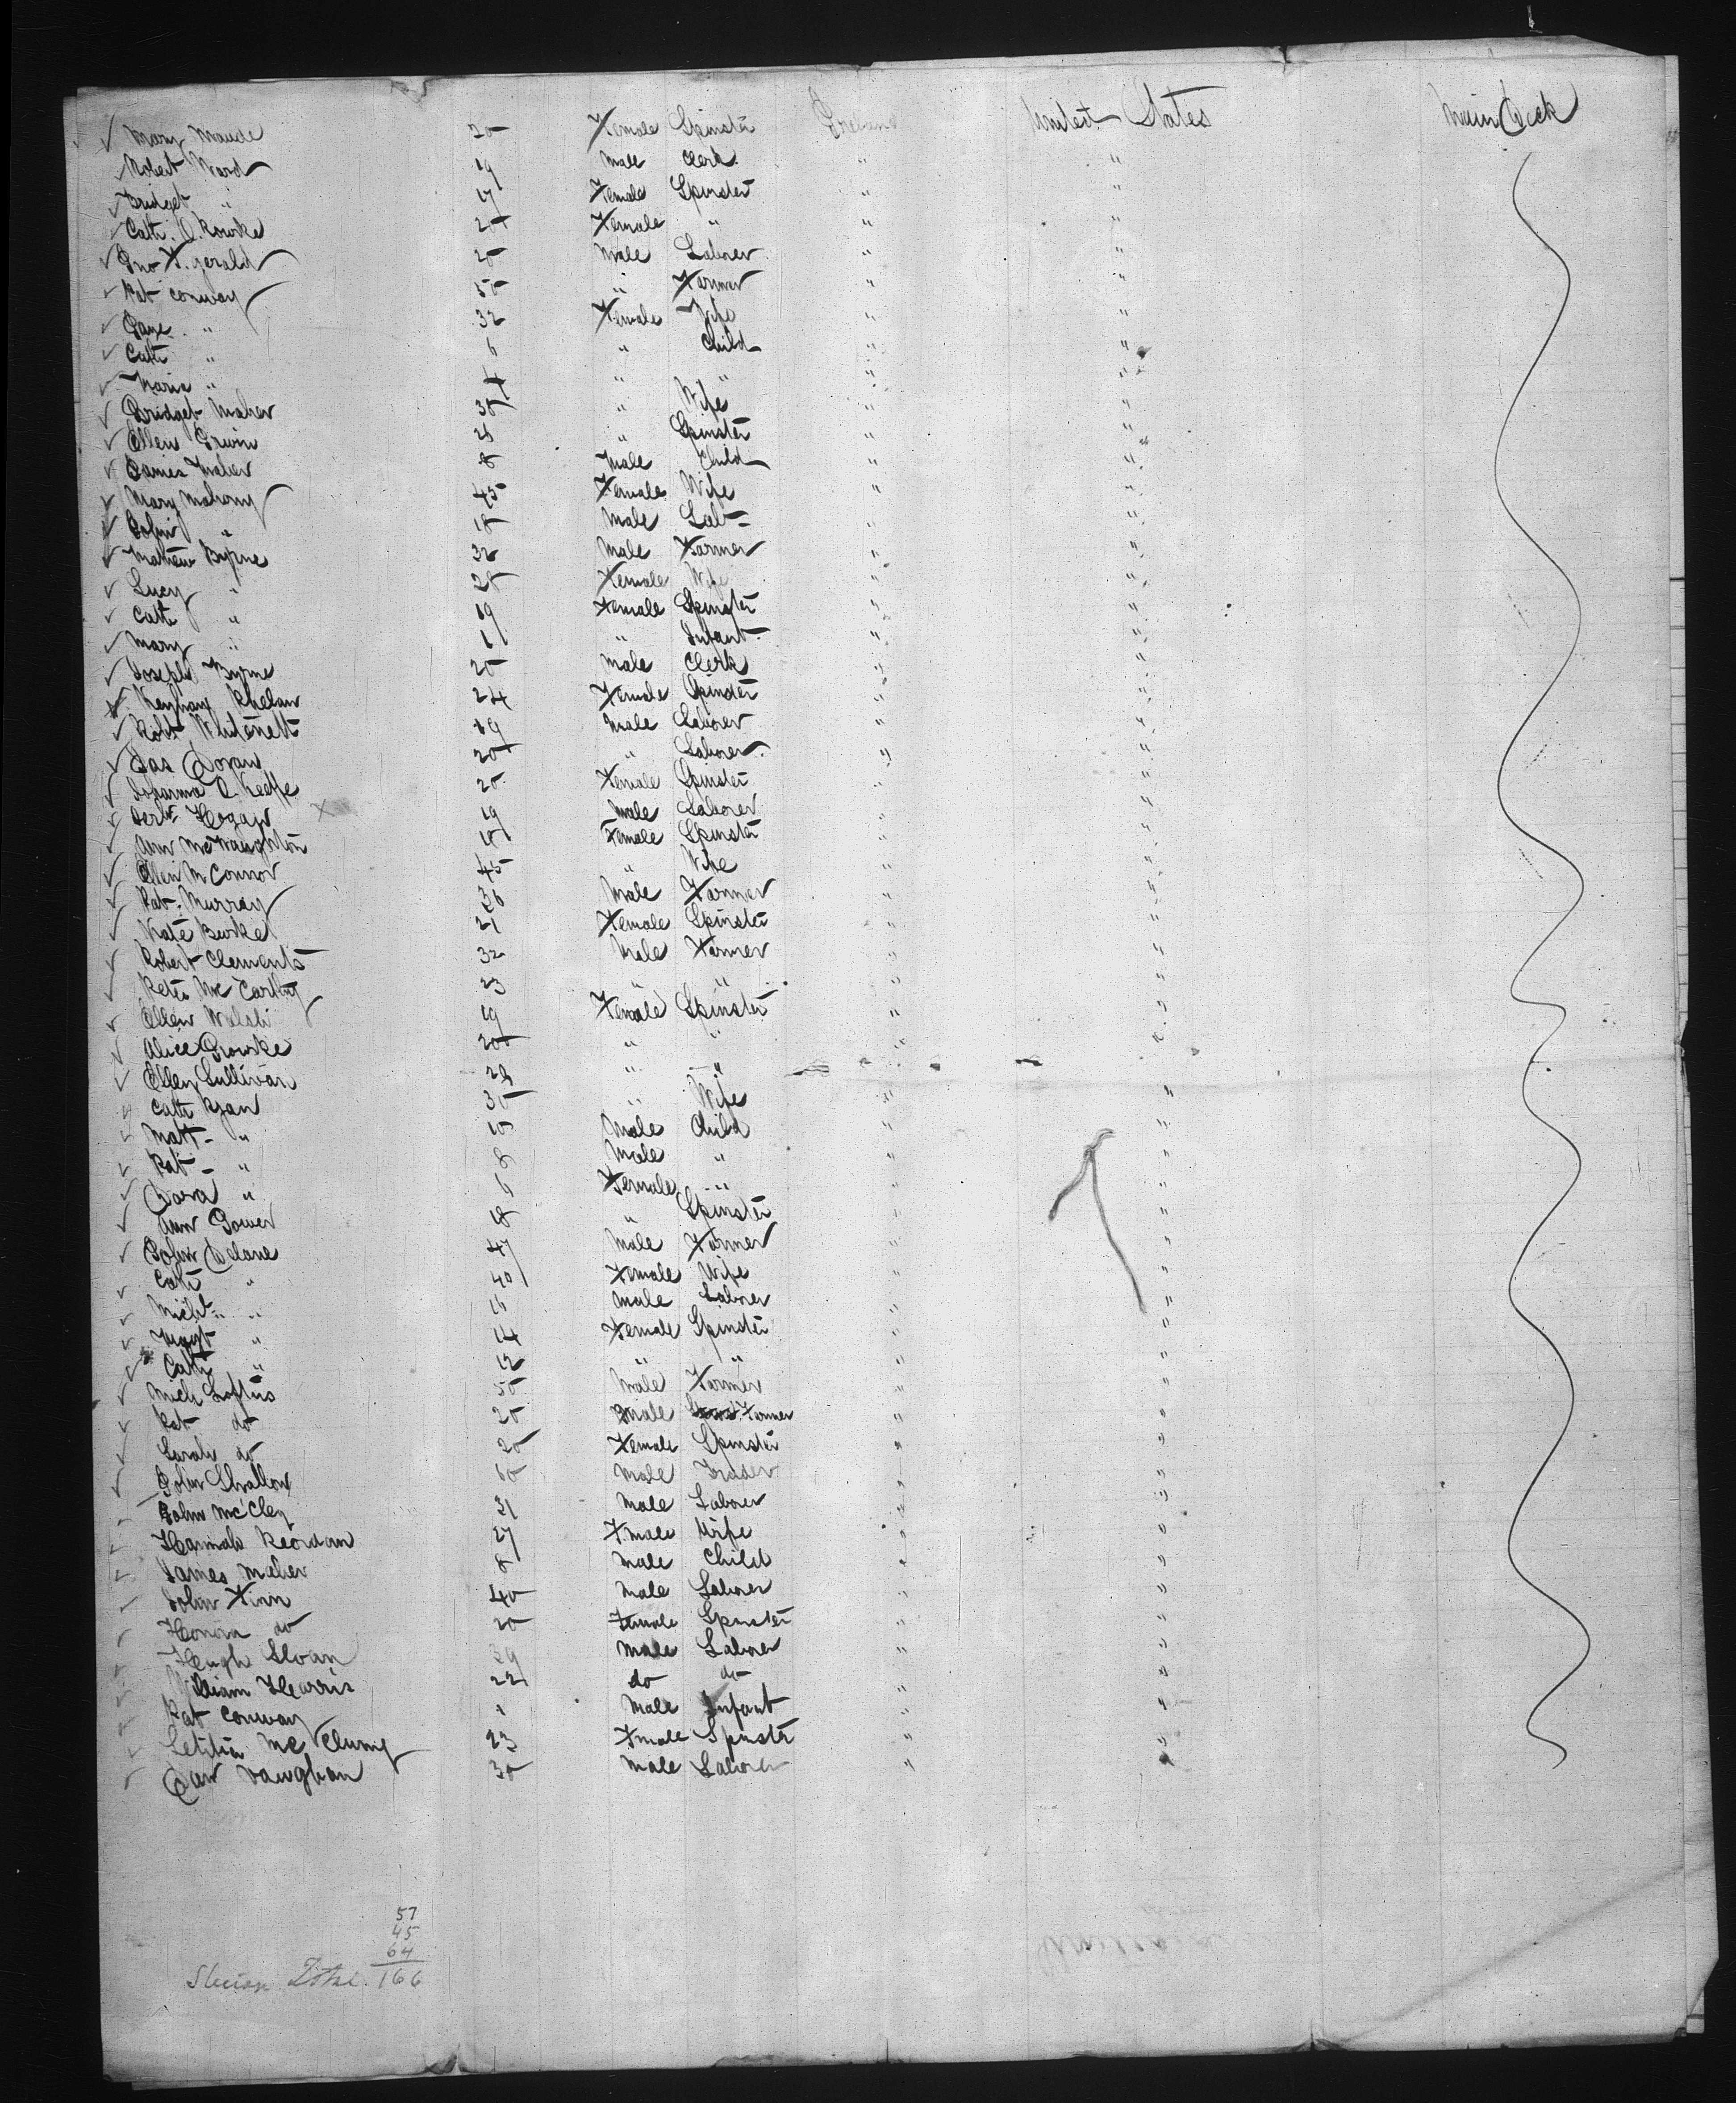 Mary Maude 20 Female Spinster Ireland United States Main Deck
Robert Ward 19 Male Clerk " "
Bridget " 17 Female Spinster " "
Cath. O. Rourke 20 Female " " "
Jno F. gerald 20 Male Laborer " "
Pat Conway 50 " Farmer " "
Jane " 32 Female Wife " "
Cath " 6 " Child " "
Maria " 4 " " " "
Bridget Maher 30 " Wife " "
Ellen Irwin " Spinster " "
James Maher 8 Male Child " "
Mary Mahony 45 Female Wife " "
John " 18 Male Lab- " "
Mathew Byrne 32 Male Farmer " "
Lucy " 28 Female Wife " "
Cath " 19 Female Spinster " "
Mary " 1 " Infant " "
Joseph Byrne 20 Male Clerk " "
Phelan 24 Female Spinster " "
Robt 19 Male Laborer " "
Jas Doran 20 " Laborer " "
Johanna O. Keeffe 20 Female Spinster " "
Hogan 19 Male Laborer " "
Ann McNaughton 18 Female Spinster " "
Ellen McConnor 45 " Wife " "
Pat. Murray 36 Male Farmer " "
Kate Burke 21 Female Spinster " "
Robert Clements 32 Male Farmer " "
Peter McCarthy 23 " " " "
Ellen Walsh 19 Female Spinster " "
Alice Rourke 20 " " " "
Ellen Sullivan 28 " "
Cath Ryan 30 " Wife " "
Matt- " 10 Male Child " "
Pat- " 8 Male " " "
Dora " 6 Female " " "
Ann Power 18 " Spinster " "
John Delane 47 Male Farmer " "
Cath " 40 Female Wife " "
Michl " 16 Male Laborer " "
Margt " 14 Female Spinster " "
Cath " 12 " " " "
Mich Loftus 50 Male Farmer " "
Pat do 20 Male Farmer " "
Sarah do 20 Female Spinster " "
John Shallow 60 Male Trader " "
John McCley 31 Male Laborer " "
Hannah Reordan 27 Fmale Wife " "
James Maher 8 Male Child " "
John Finn 40 Male Laborer " "
Honora do 20 Female Spinster " "
Hugh Sloan 29 Male Laborer " "
William Harris 22 do do " "
Pat Conway 1 Male Infant " "
Letitia McClumy 23 Fmale Spinster " "
Dan Vaughan 30 Male Laborer " "
57
45
64
Total. 166